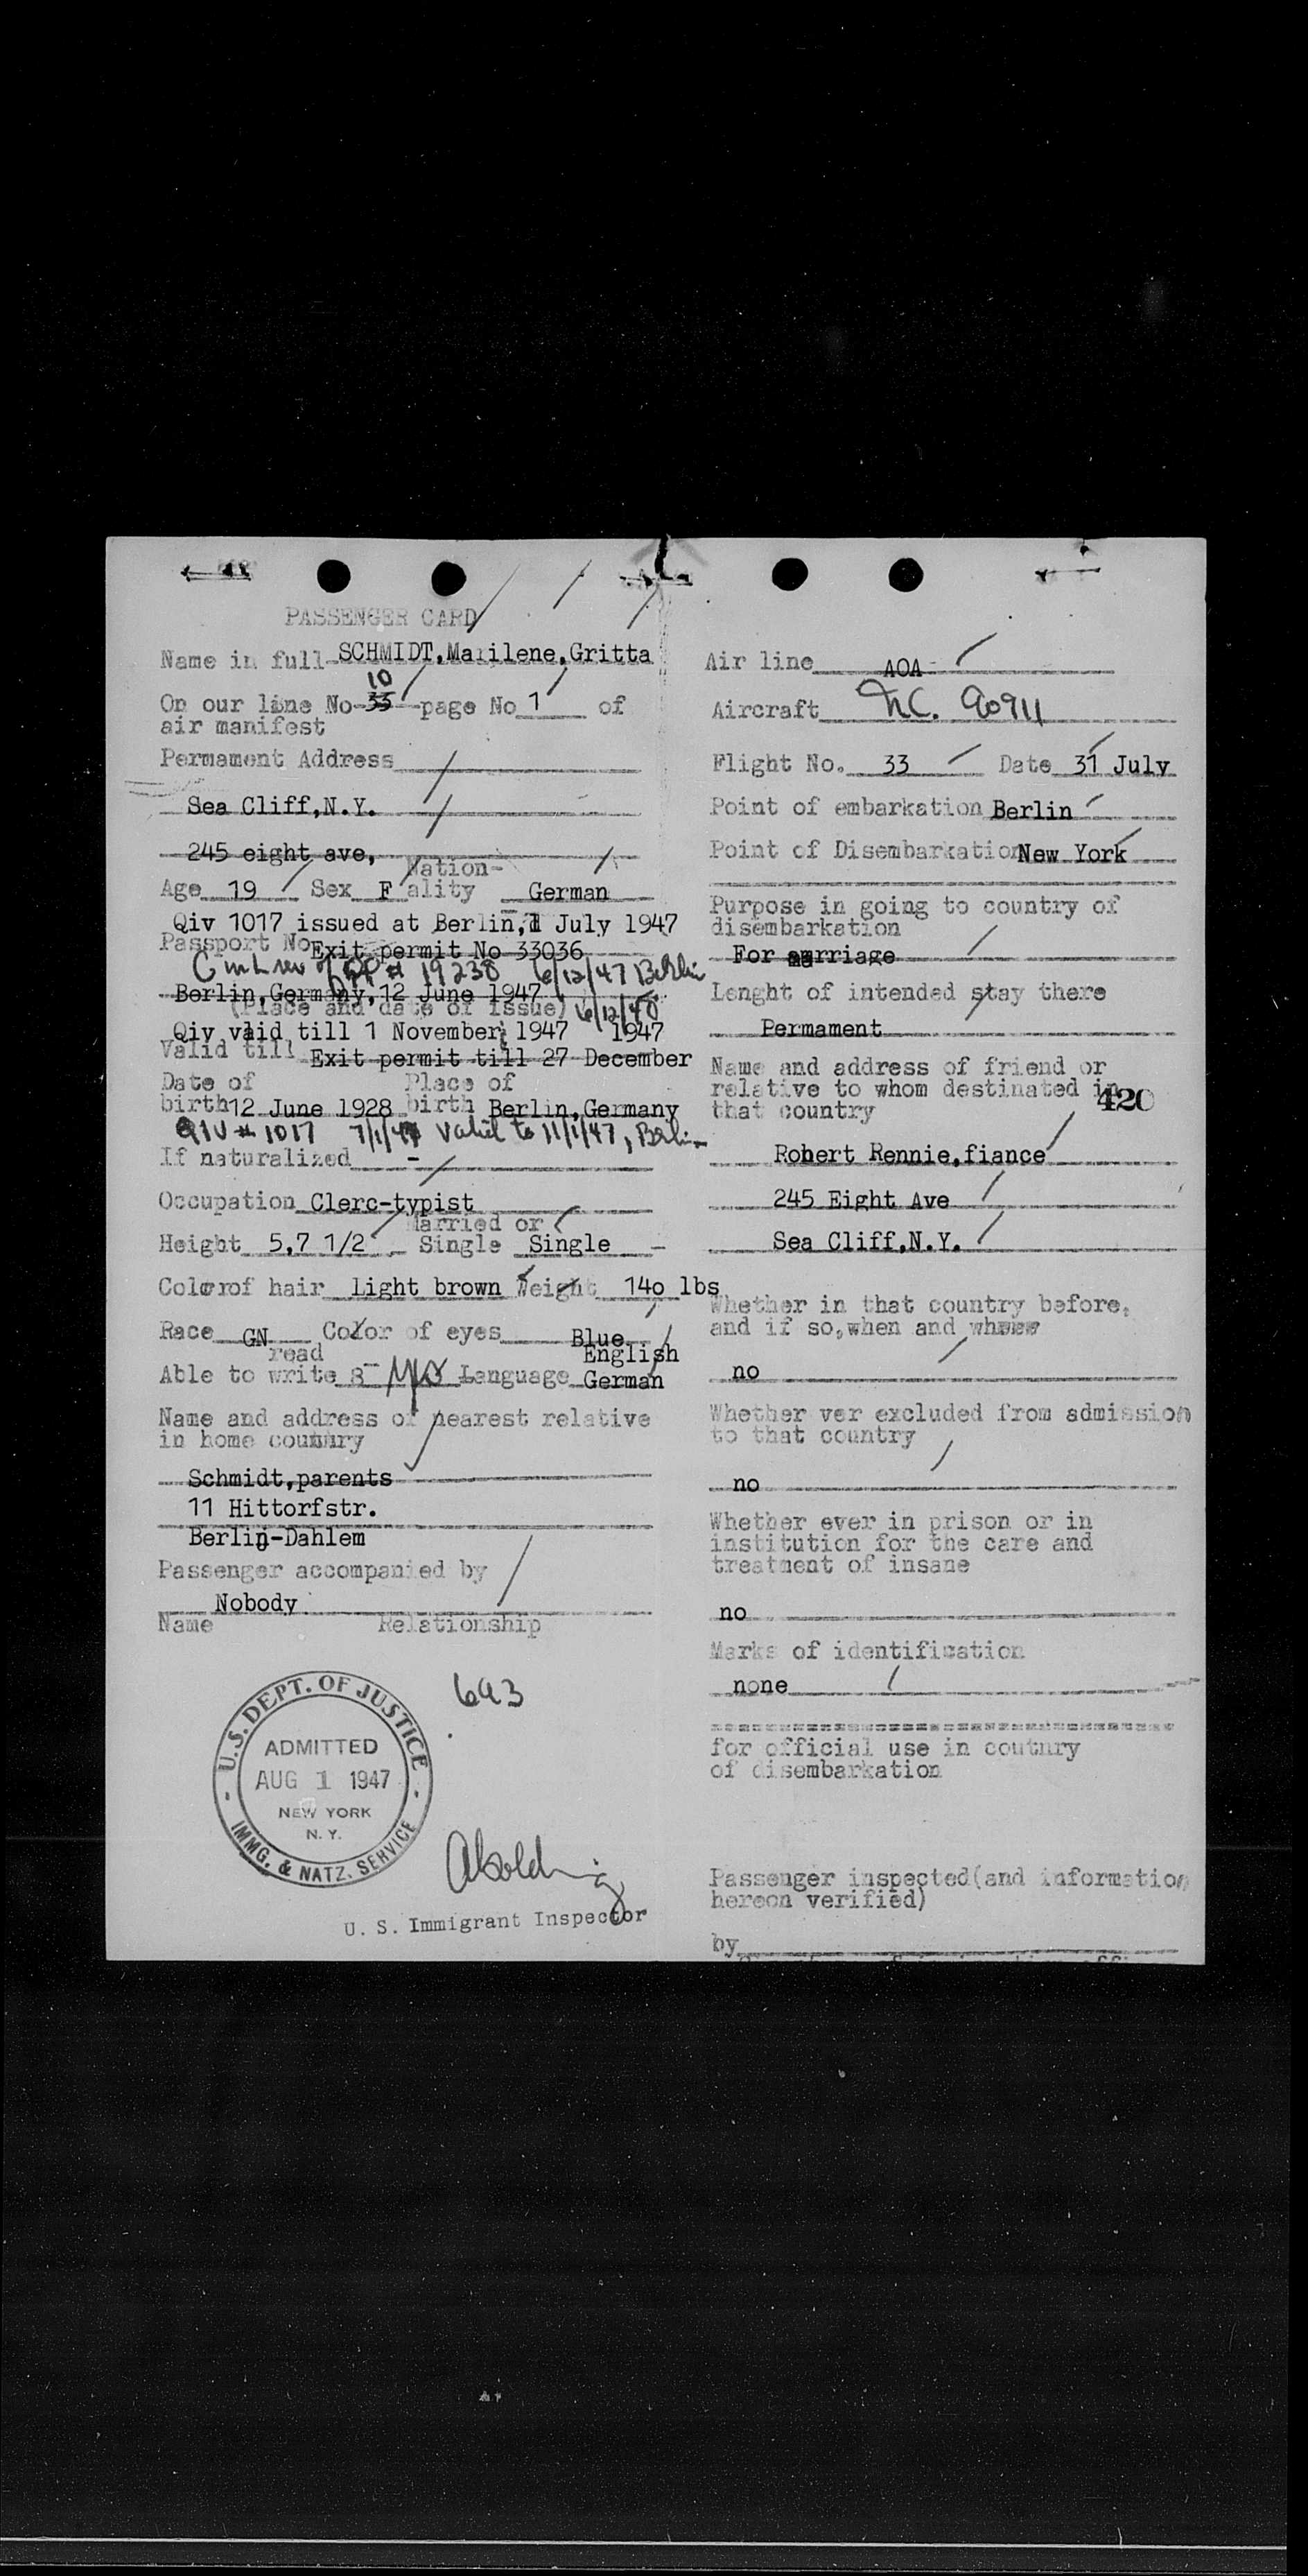 PASSENGER CARD
Name in full SCHMIDT,Marilene,Gritta
10
On our line No 33 page No 1 of
air manifest
Permament Address
Sea Cliff,N.Y.
245 eight ave,
Nation-
Age 19 Sex F ality German
Qiv 1017 issued at Berlin,1 July 1947
Passport No Exit permit No 33036
19238 6/12/47 Berlin
Berlin,Germany,12 June 1947
(Place and date of issue) 6/12/48
Qiv valid till 1 November 1947 1947
Valid till Exit permit till 27 December
Date of Place of
birth 12 June 1928 birth Berlin,Germany
QIV # 1017 7/1/47 Valid to 11/1/47, Berlin
If naturalized -
Occupation Clerc-typist
Married or
Height 5,7 1/2 Single Single
Color of hair light brown Weight 14o lbs
Race GN Color of eyes Blue
read English
Able to write Language German
Name and address of nearest relative
in home country
Schmidt,parents
11 Hittorfstr.
Berlin-Dahlem
Passenger accompanied by
Nobody
Name Relationship
693
U.S. DEPT. OF JUSTICE
ADMITTED
AUG 1 1947
NEW YORK
N. Y.
IMMG. & NATZ. SERVICE
U. S. Immigrant Inspector
Air line AOA
Aircraft NC. 90911
Flight No. 33 Date 31 July
Point of embarkation Berlin
Point of Disembarkation New York
Purpose in going to country of
disembarkation
For marriage
Lenght of intended stay there
Permament
Name and address of friend or
relative to whom destinated in
that country 420
Robert Rennie,fiance
245 Eight Ave
Sea Cliff,N.Y.
Whether in that country before,
and if so,when and
no
Whether ver excluded from admission
to that country
no
Whether ever in prison or in
institution for the care and
treatment of insane
no
Marks of identification
none
for official use in coutnry
of disembarkation
Passenger inspected(and information
hereon verified)
by